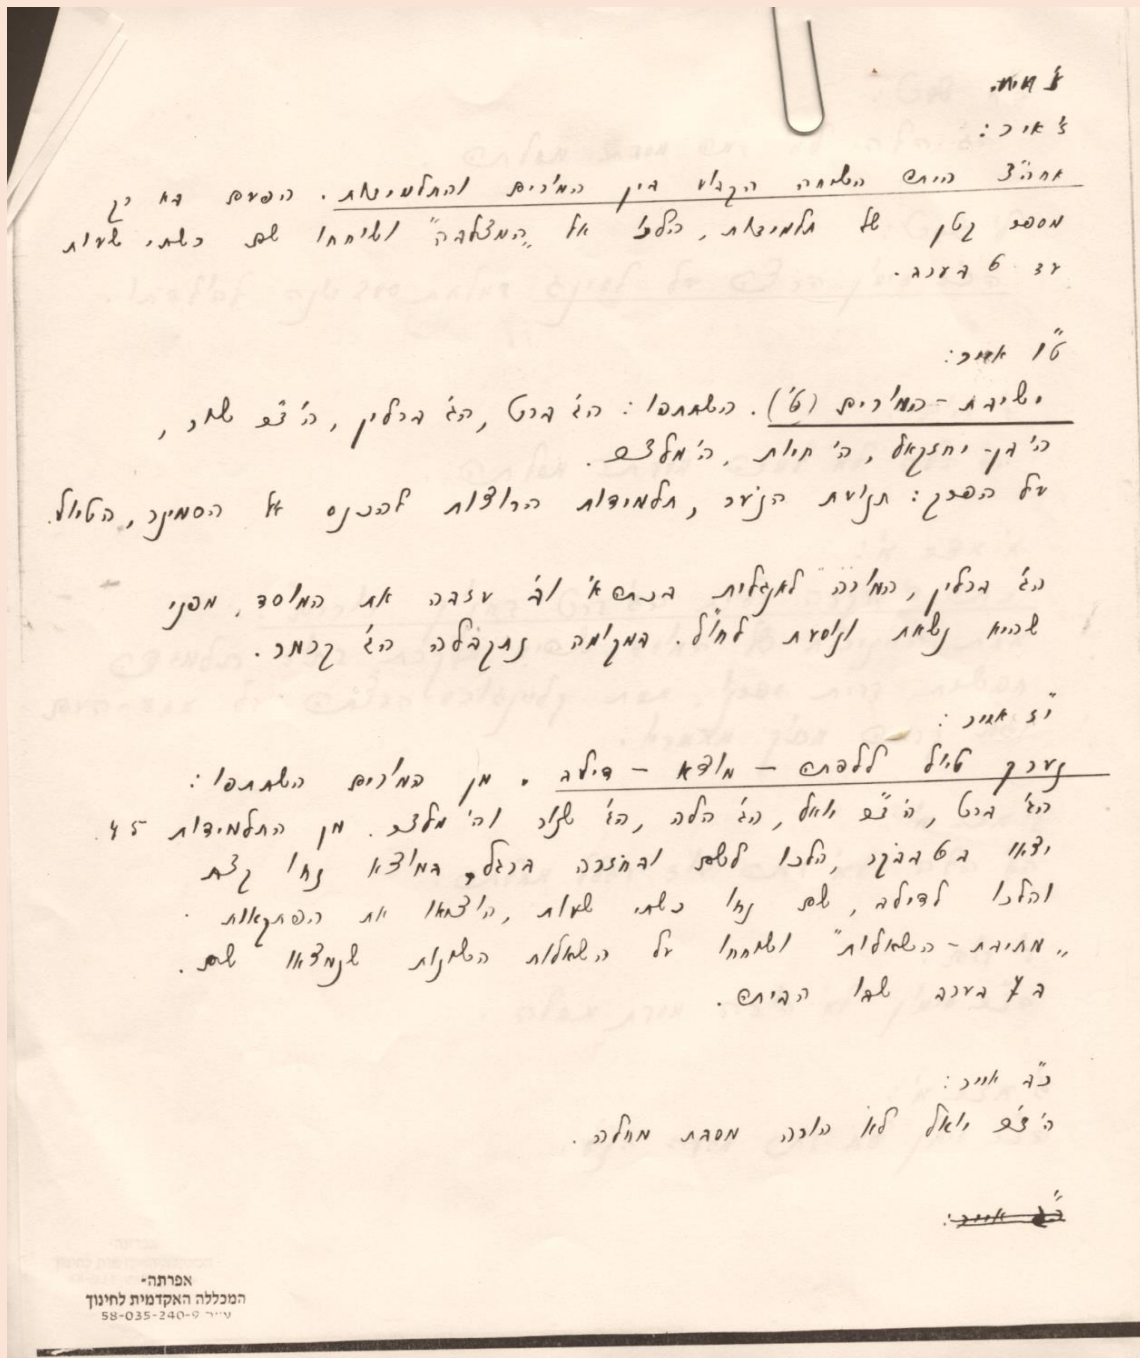 ז' אייר:
אחה"צ היתה השיחה הקבוע בין המורים והתלמידות. הפעם בא רק
מספר קטן של תלמידות, הלכו אל "המצלבה" ושוחחו שם כשתי שעות
עד 6 בערב.
ט"ו אייר:
ישיבת-המורים (ט'). השתתפו: הג' ברט, הג' ברלין, ה' ד"ר שור,
ה' בן-יחזקאל, ה' חיות, ה' מלצר.
על הפרק: תנועת הנוער, תלמידות הרוצות להכנס אל הסמינר, הטיול.
הג' ברלין, המורה לאנגלית בכתה א' וב' עזבה את המוסד, מפני
שהיא נשאת ונוסעת לחו"ל. במקומה נתקבלה הג' קרמר.
י"ז אייר:
נערך טיול – מוצא – דילב. מן המורים השתתפו:
הג' ברט, ה' ד"ר יואל, הג' הלה, הג' שנור וה' מלצר. מן התלמידות 45.
יצאו ב 6 בבקר, הלכו לשם ובחזרה ברגל, במוצא נחו קצת
והלכו לדילב, שם נחו כשתי שעות, הוצאו את הפתקאות
"מתיבת-השאלות" ושוחחו על השאלות השונות שנמצאו שם.
ב 7 בערב שבו הביתה.
כ"ב אייר:
ה' ד"ר יואל לא הורה מסבת מחלה.
כ"ג אייר:
אפרתה-
המכללה האקדמית לחינוך
ע"ר 58-035-240-9